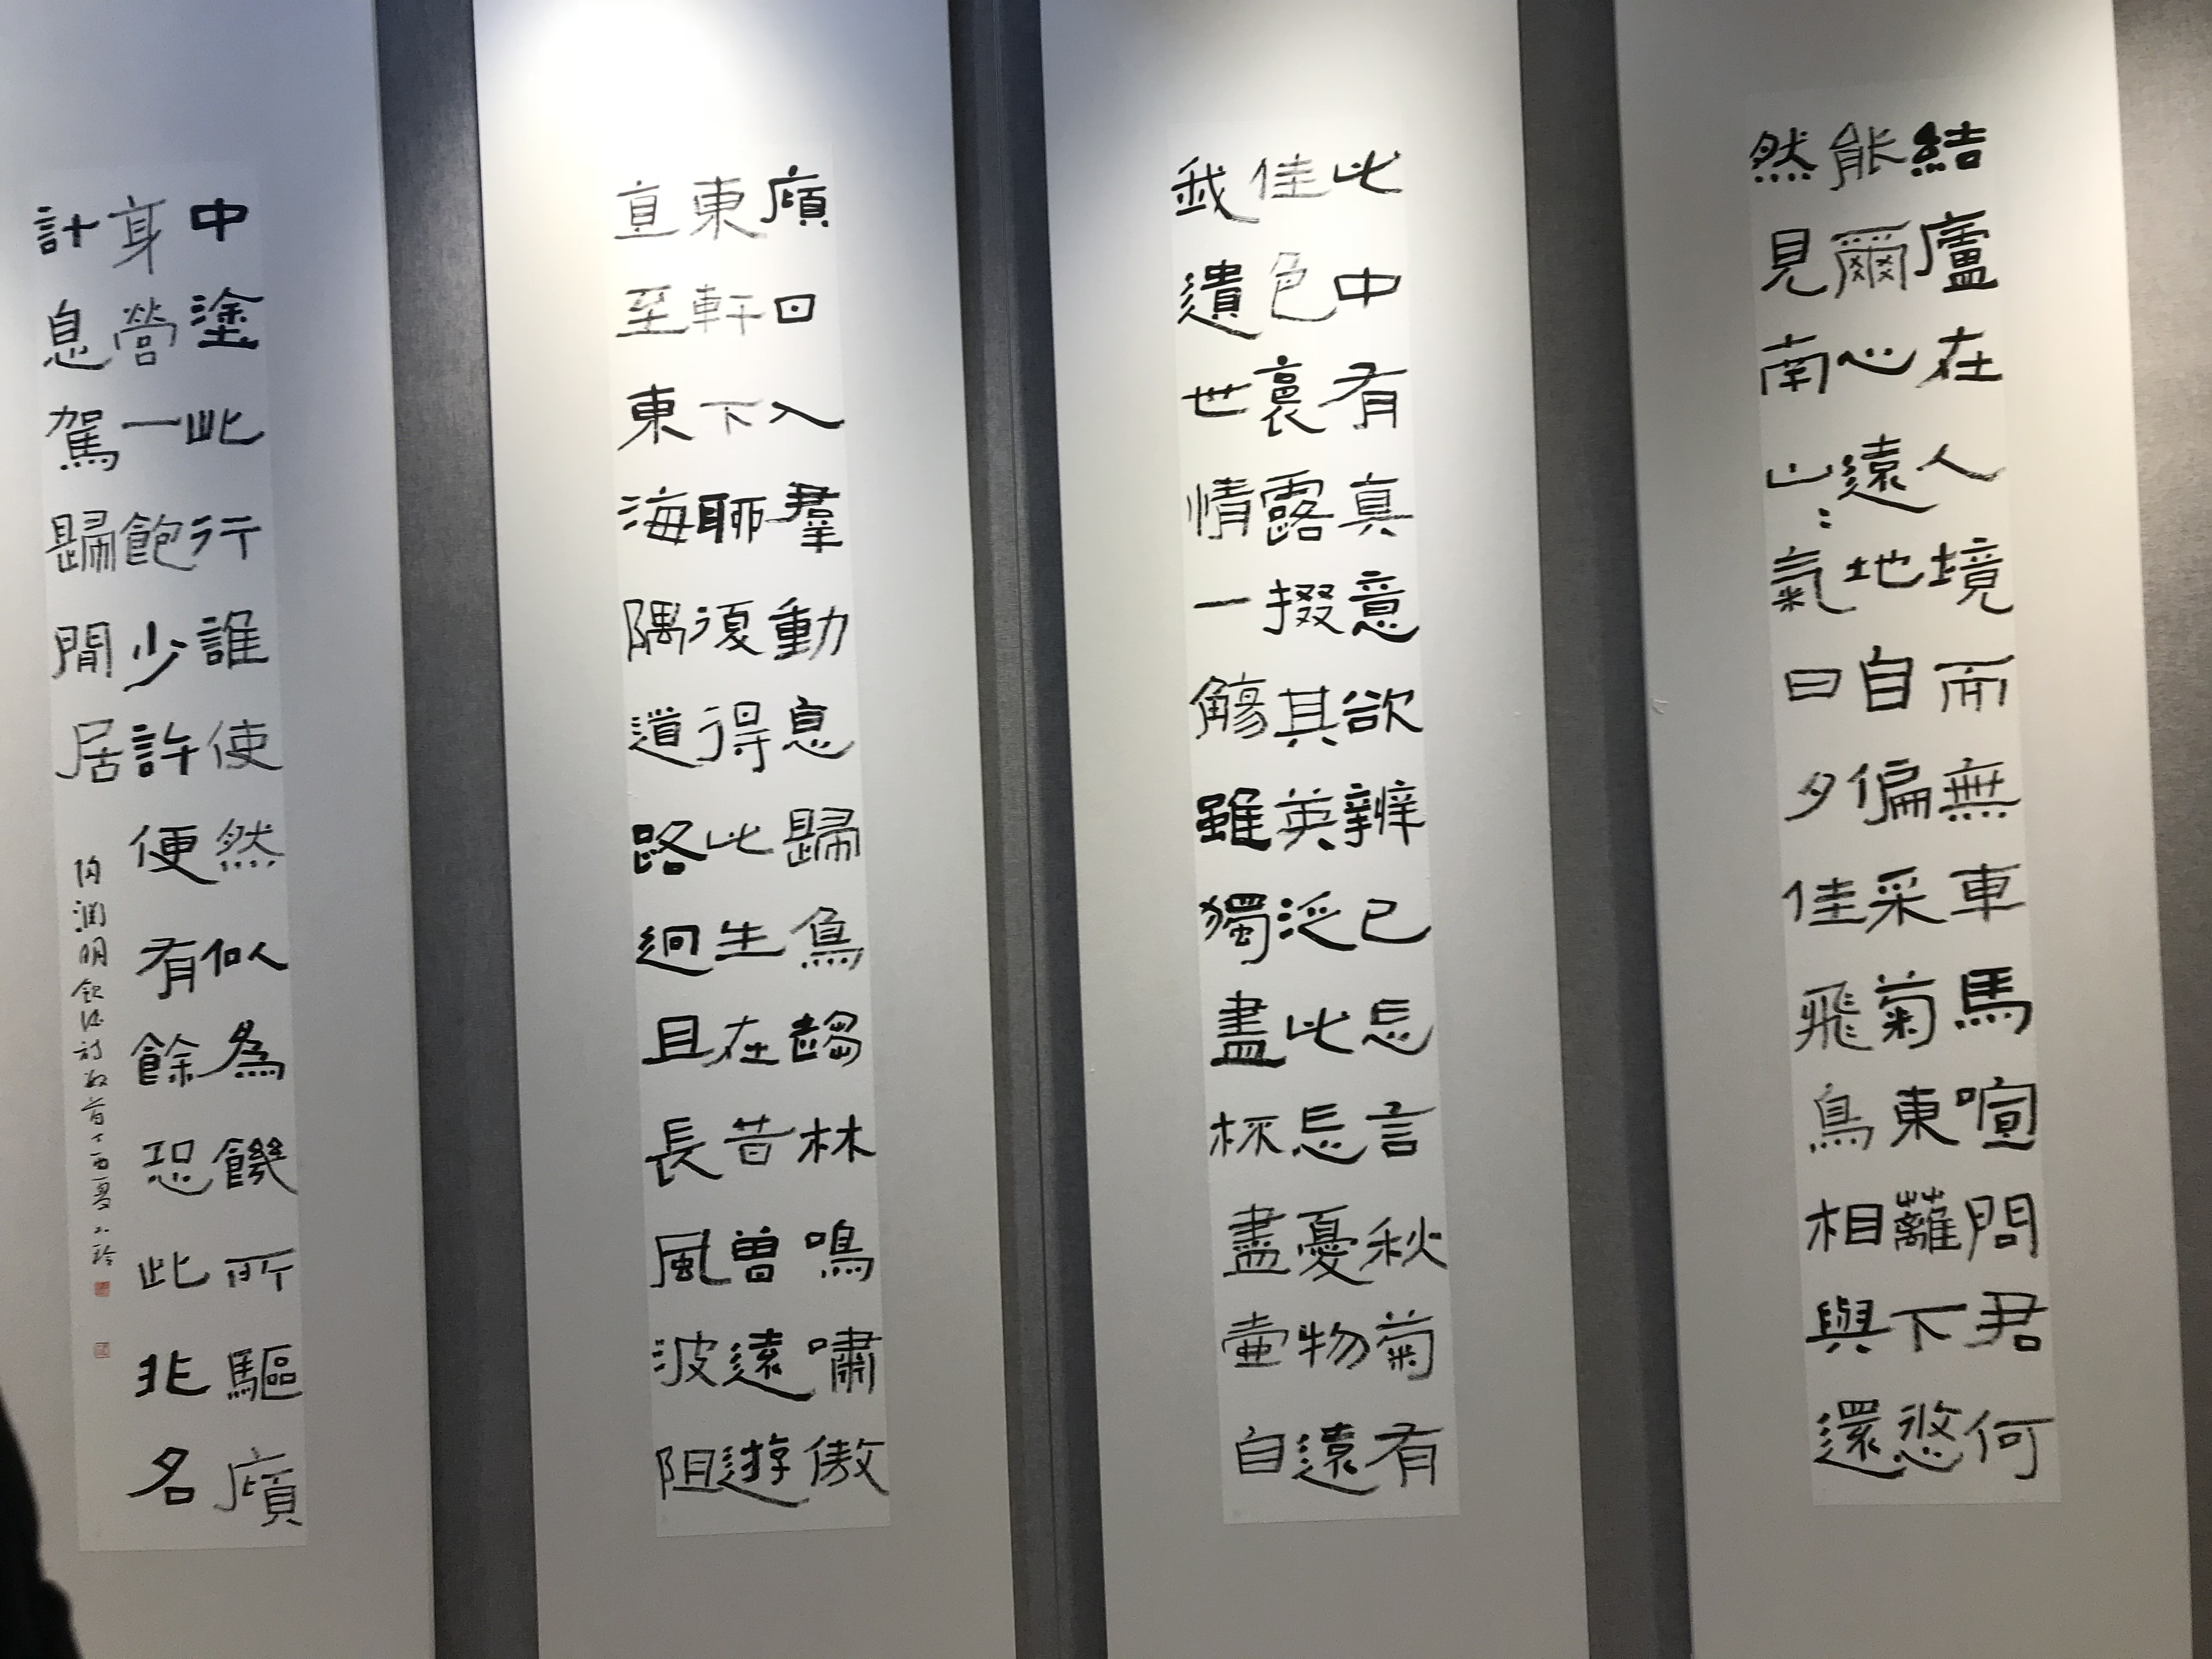 結廬在人境而無車馬喧問君何
能爾心遠地自偏采菊東蘺下悠
然見南山〻氣日夕佳飛鳥相與還
此中有真意欲辨已忘言秋菊有
佳色裛露掇其英泛此忘憂物遠
我遺世情一觴雖獨盡杯盡壺自
傾日入羣動息歸鳥趨林鳴嘯傲
東軒下聊復得此生在昔曾遠遊
直至東海隅道路迥且長風波阻
中塗此行誰使然似為饑所驅傾
身營一飽少許便有餘恐此非名
計息駕歸閒居
陶淵明飲酒詩數首丁酉夏